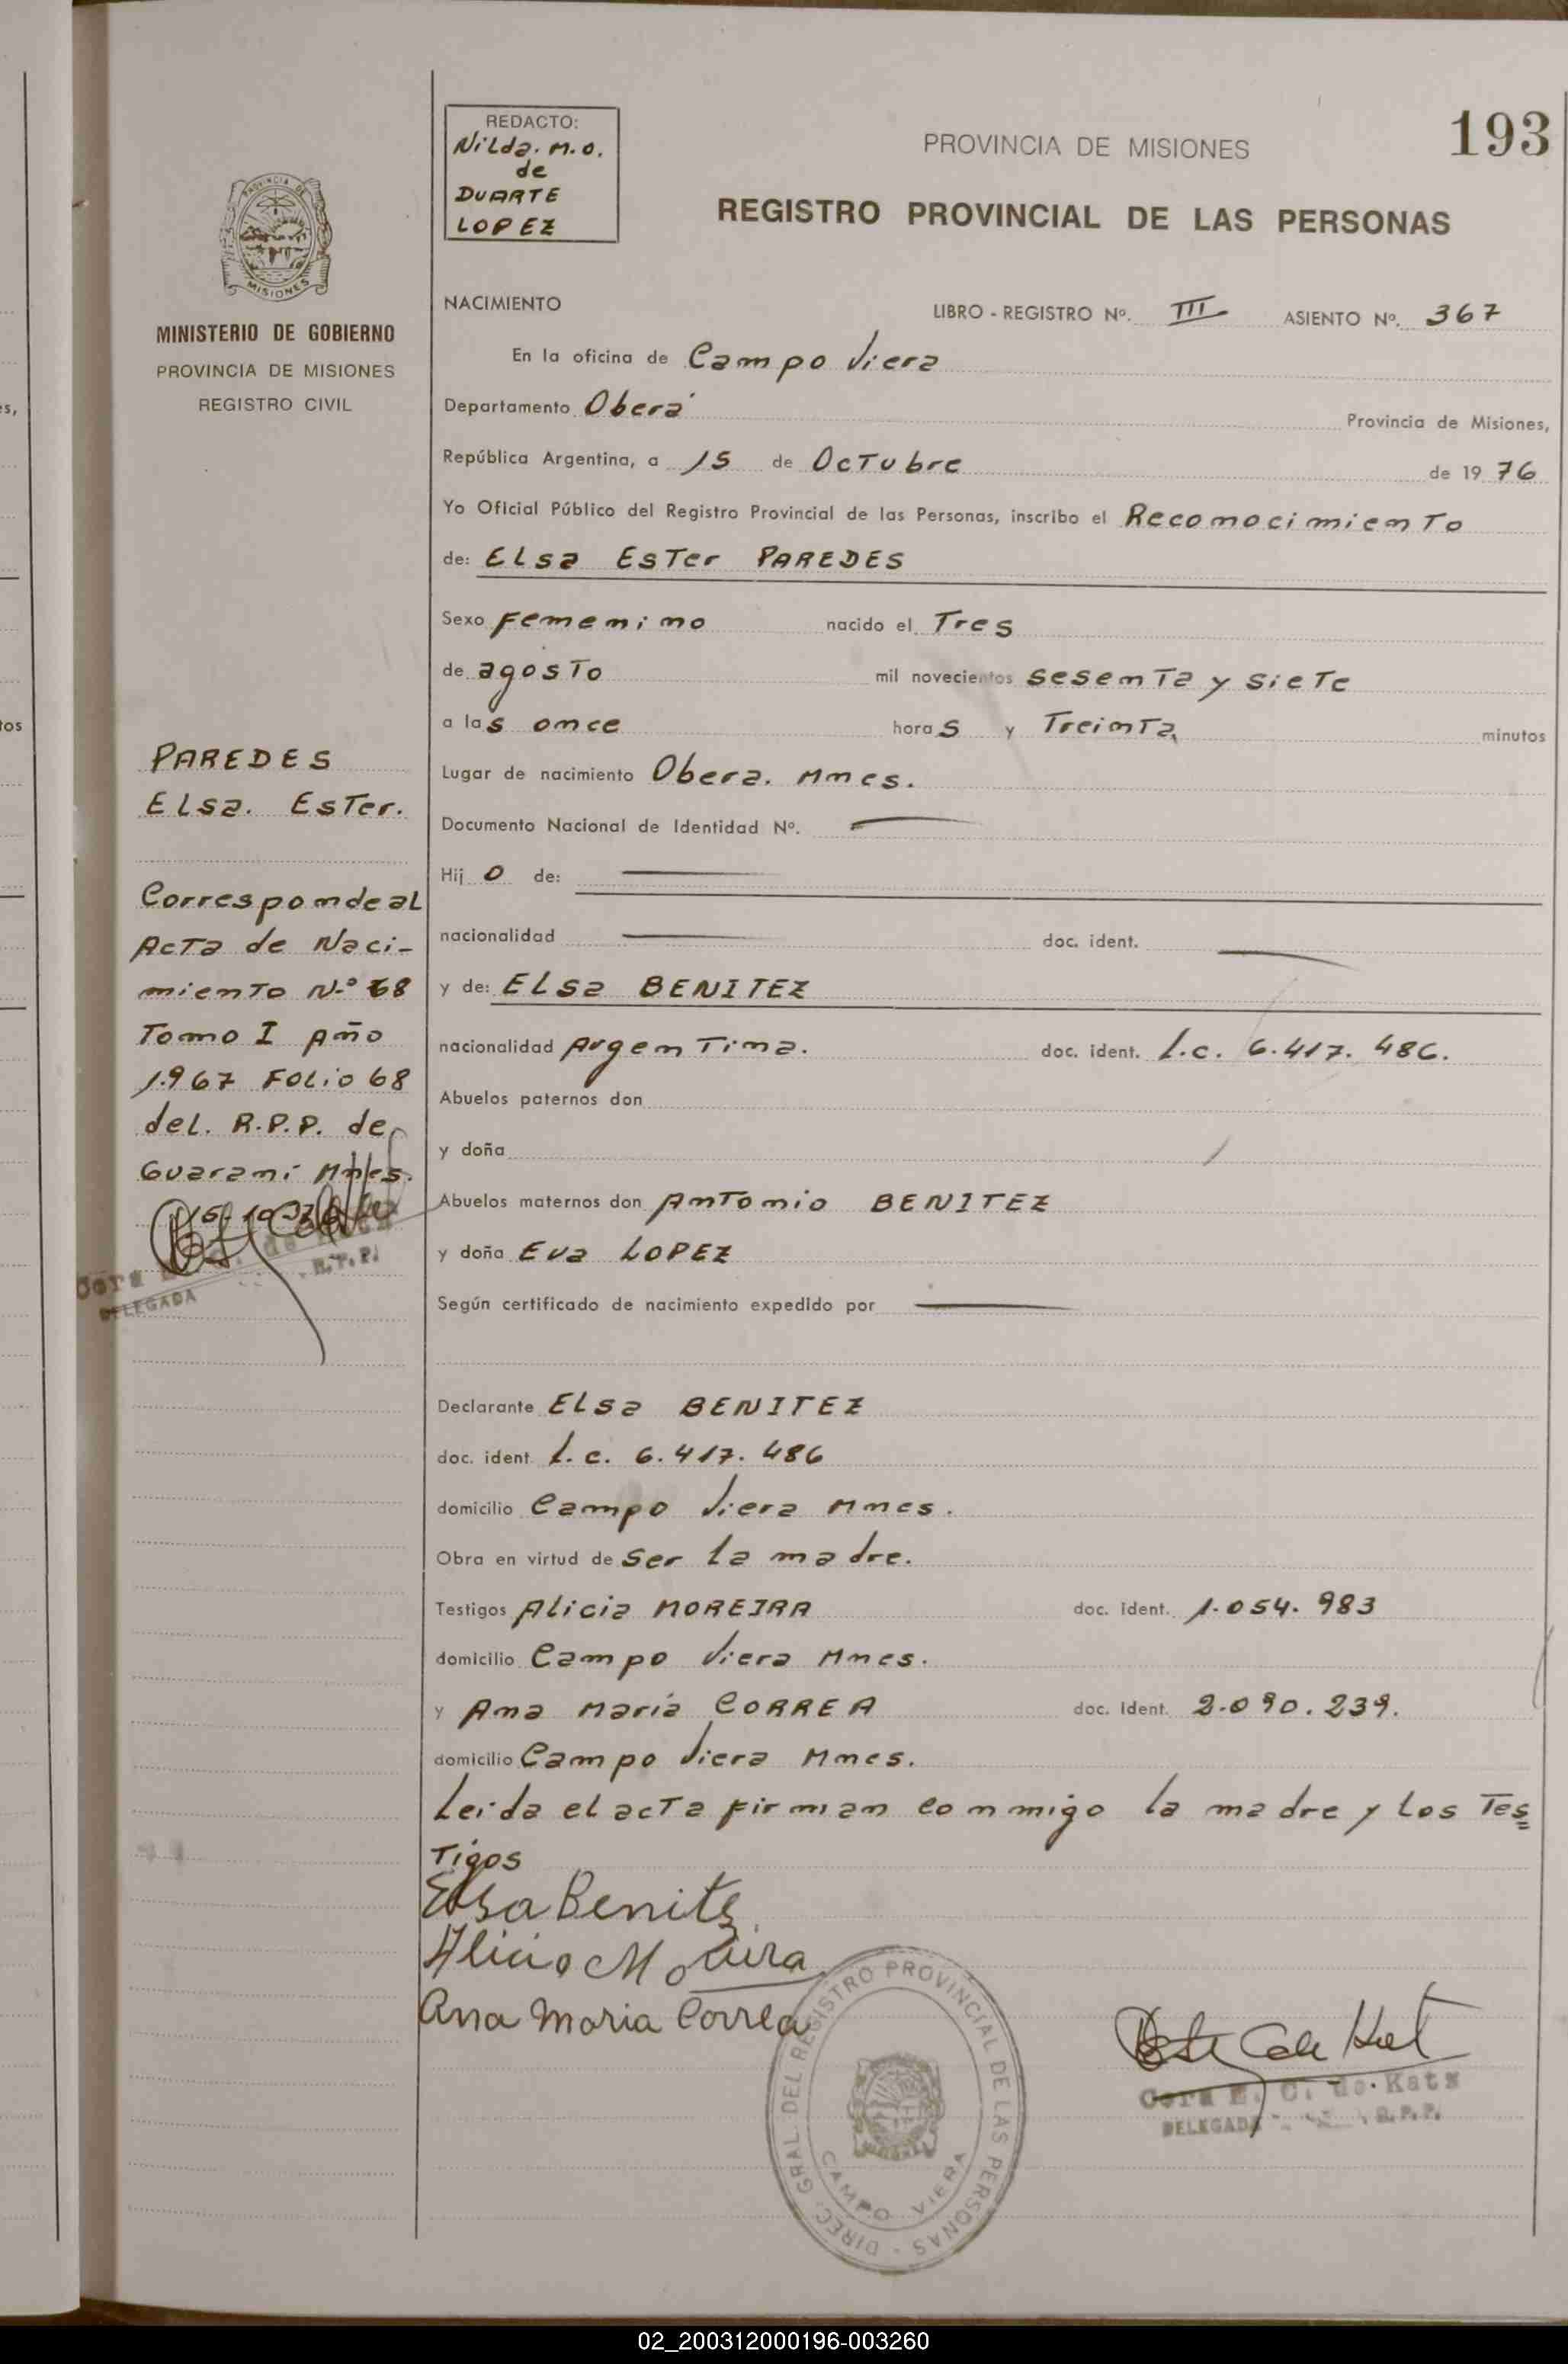 193
REDACTO:
Nilda. M.O.
de
DUARTE
LOPEZ
PROVINCIA DE MISIONES
REGISTRO PROVINCIAL DE LAS PERSONAS
PROVINCIA DE
MISIONES
MINISTERIO DE GOBIERNO
PROVINCIA DE MISIONES
REGISTRO CIVIL
PAREDES
Elsa. Ester.
Corresponde al
Acta de Naci-
miento N.º 68
Tomo I Año
1.967 Folio 68
del. R.P.P. de
Guaraní Mnes.
DELEGADA R.P.P.
NACIMIENTO LIBRO - REGISTRO Nº. III ASIENTO Nº. 367
En la oficina de Campo Viera
Departamento Oberá Provincia de Misiones,
República Argentina, a 15 de Octubre de 19 76
Yo Oficial Público del Registro Provincial de las Personas, inscribo el Reconocimiento
de: Elsa Ester PAREDES
Sexo Femenino nacido el Tres
de agosto mil novecientos sesenta y siete
a las once horas y Treinta minutos
Lugar de nacimiento Obera. Mnes.
Documento Nacional de Identidad Nº. —
Hij o de: —
nacionalidad — doc. ident. —
y de: Elsa BENITEZ
nacionalidad Argentina. doc. ident. L.c. 6.417.486.
Abuelos paternos don
y doña
Abuelos maternos don Antonio BENITEZ
y doña Eva LOPEZ
Según certificado de nacimiento expedido por —
Declarante Elsa BENITEZ
doc. ident. L.c. 6.417.486
domicilio Campo Viera Mnes.
Obra en virtud de Ser la madre.
Testigos Alicia MOREIRA doc. ident. 1.054.983
domicilio Campo Viera Mnes.
y Ana María CORREA doc. ident. 2.090.239.
domicilio Campo Viera Mnes.
Leída el acta firman conmigo la madre y los Tes=
tigos
Elsa Benitez
Alicia Moreira
Ana Maria Correa
DIREC. GRAL. DEL REGISTRO PROVINCIAL DE LAS PERSONAS -
CAMPO VIERA
Cora E. C. de Katz
DELEGADA R.P.P.
02_200312000196-003260